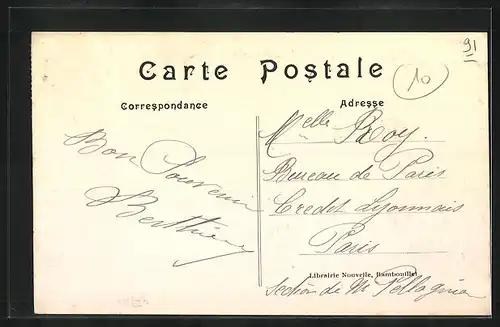 91
Carte Postale
10
Correspondance
Adresse
Bon Souvenir
Melle Roy.
Bureau de Paris
Credet Lyonnais
Paris
Librairie Nouvelle, Rambouillet
Section de Mr